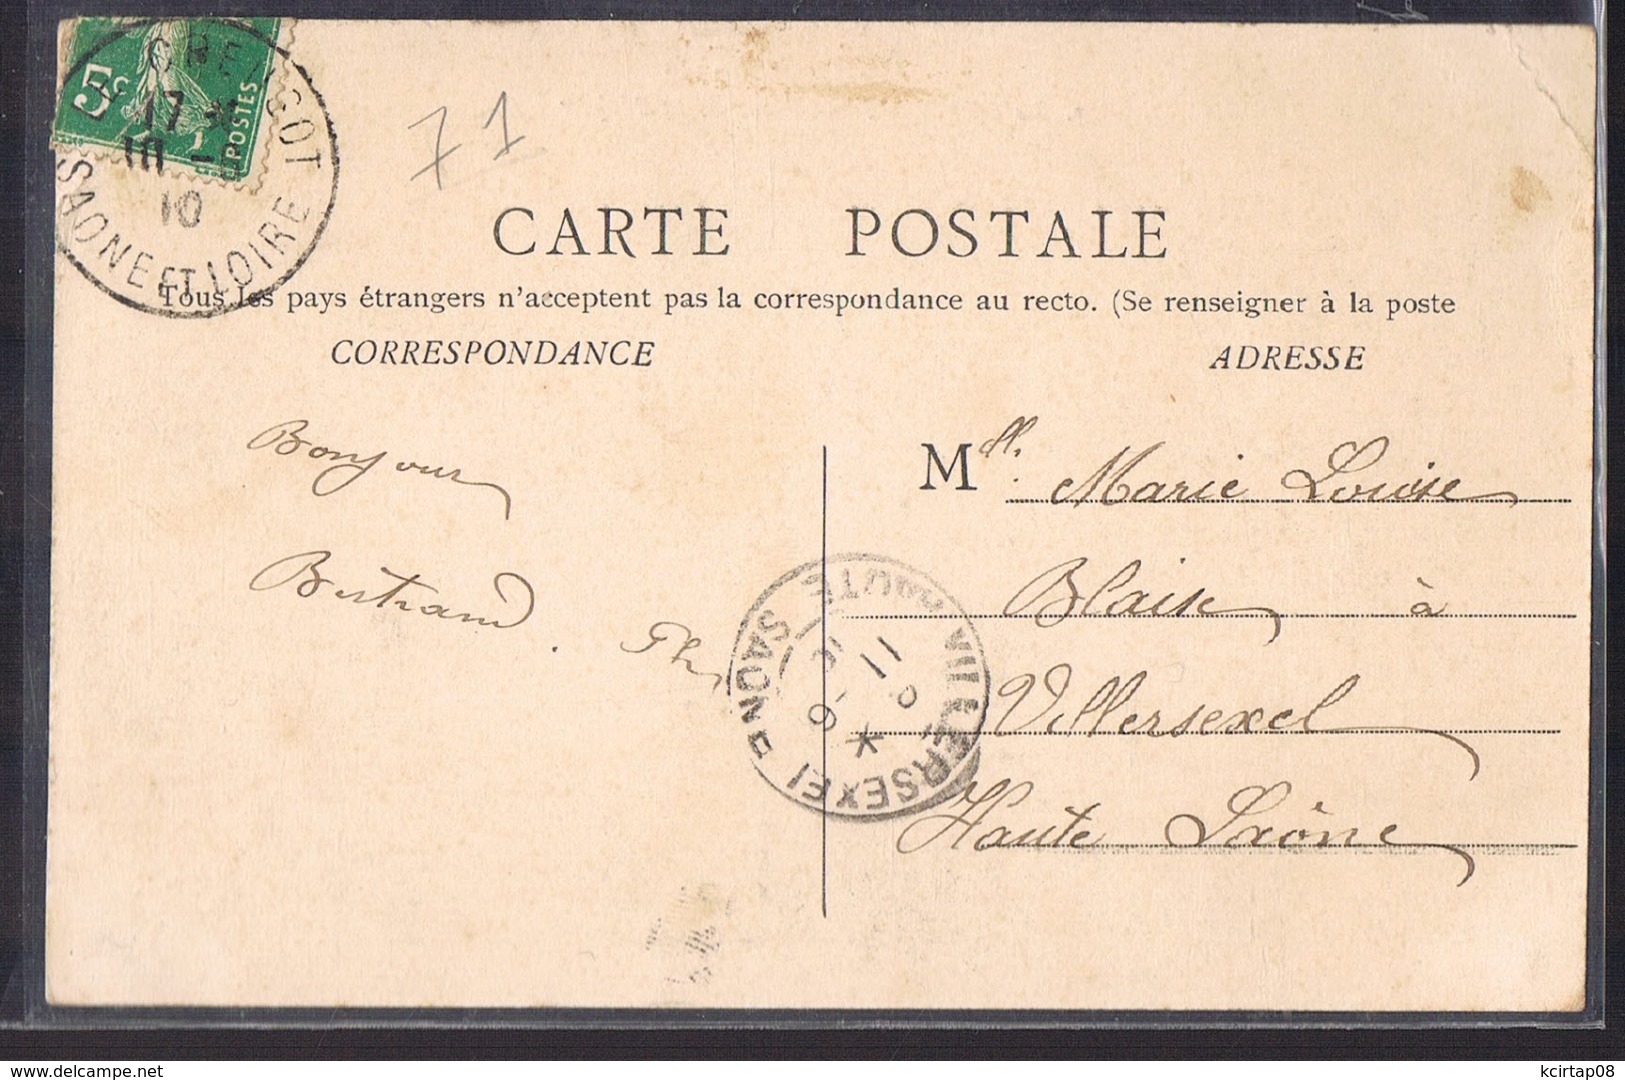 5c
POSTES
17
10
10
SAONE ET LOIRE
71
CARTE POSTALE
Tous les pays étrangers n'acceptent pas la correspondance au recto. (Se renseigner à la poste
CORRESPONDANCE
ADRESSE
Bonjour
Bertrand.
Mlle. Marie Louise
Blaise à
Villersexel
Haute Saône
VILLERSEXEL
HAUTE SAONE
11
www.delcampe.net
kcirtap08